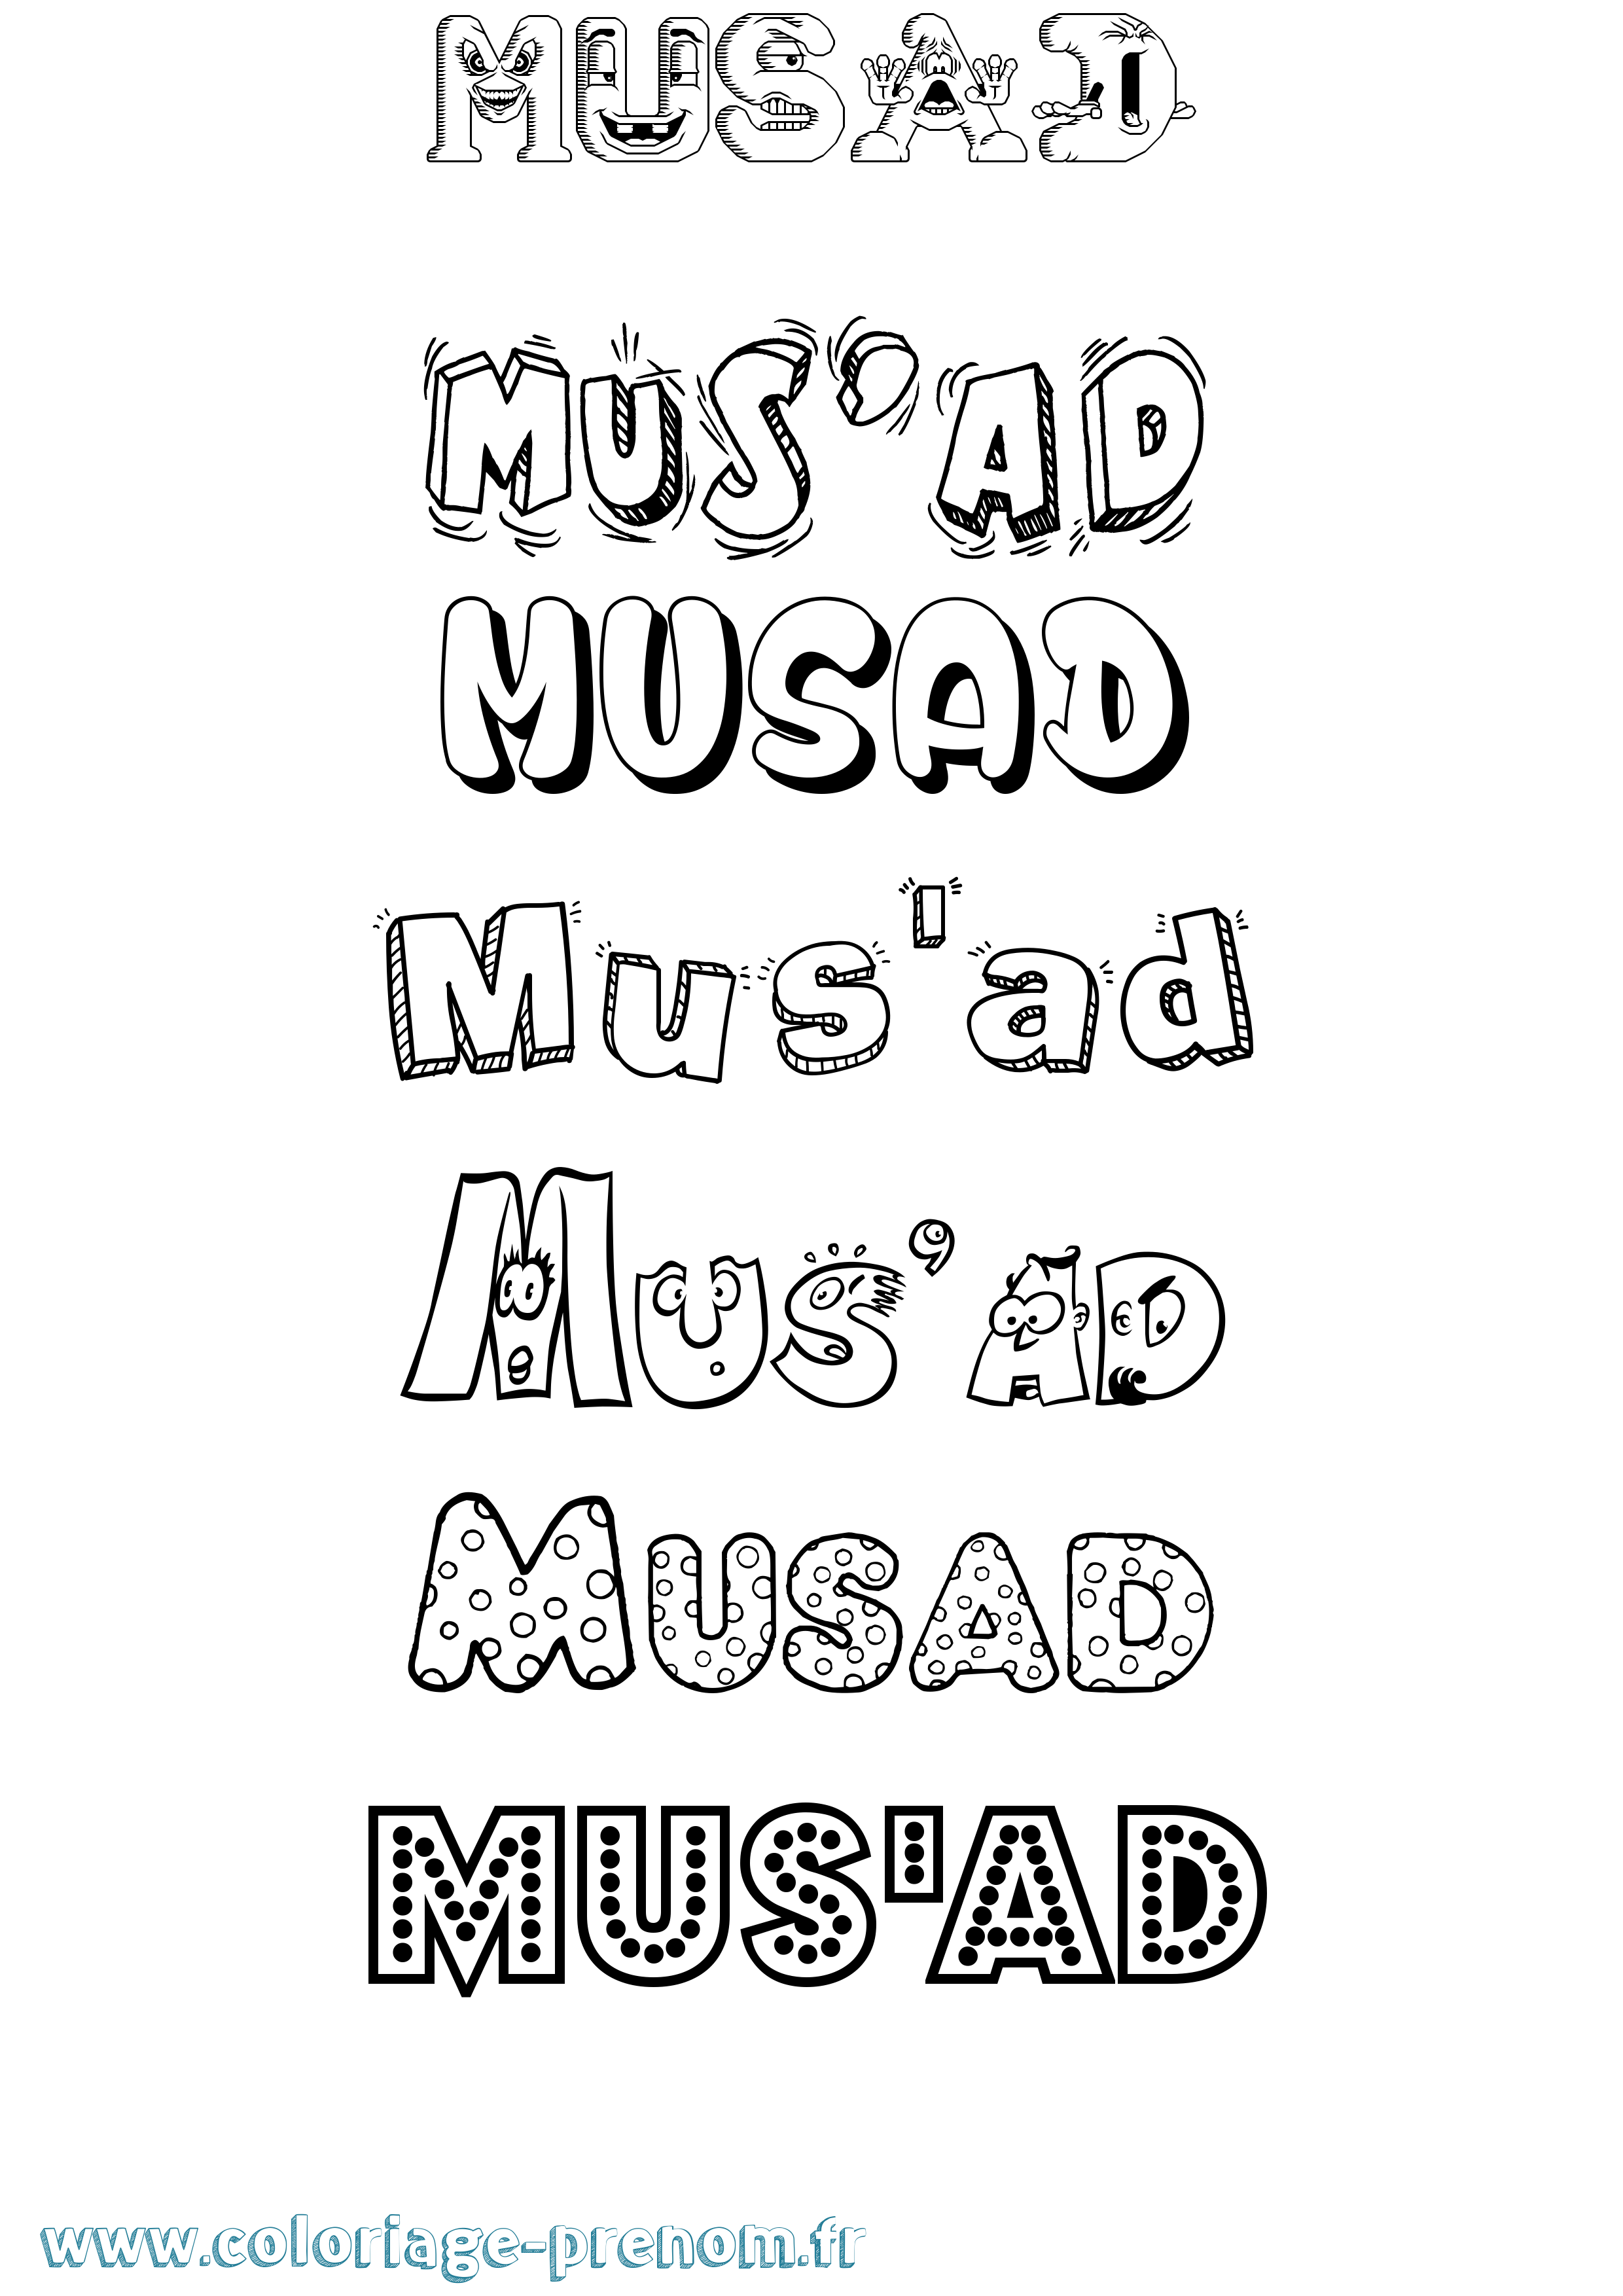 MUSAD
MUS'AD
MUSAD
Mus'ad
MUS'AD
MUSAD
MUS'AD
www.coloriage-prenom.fr